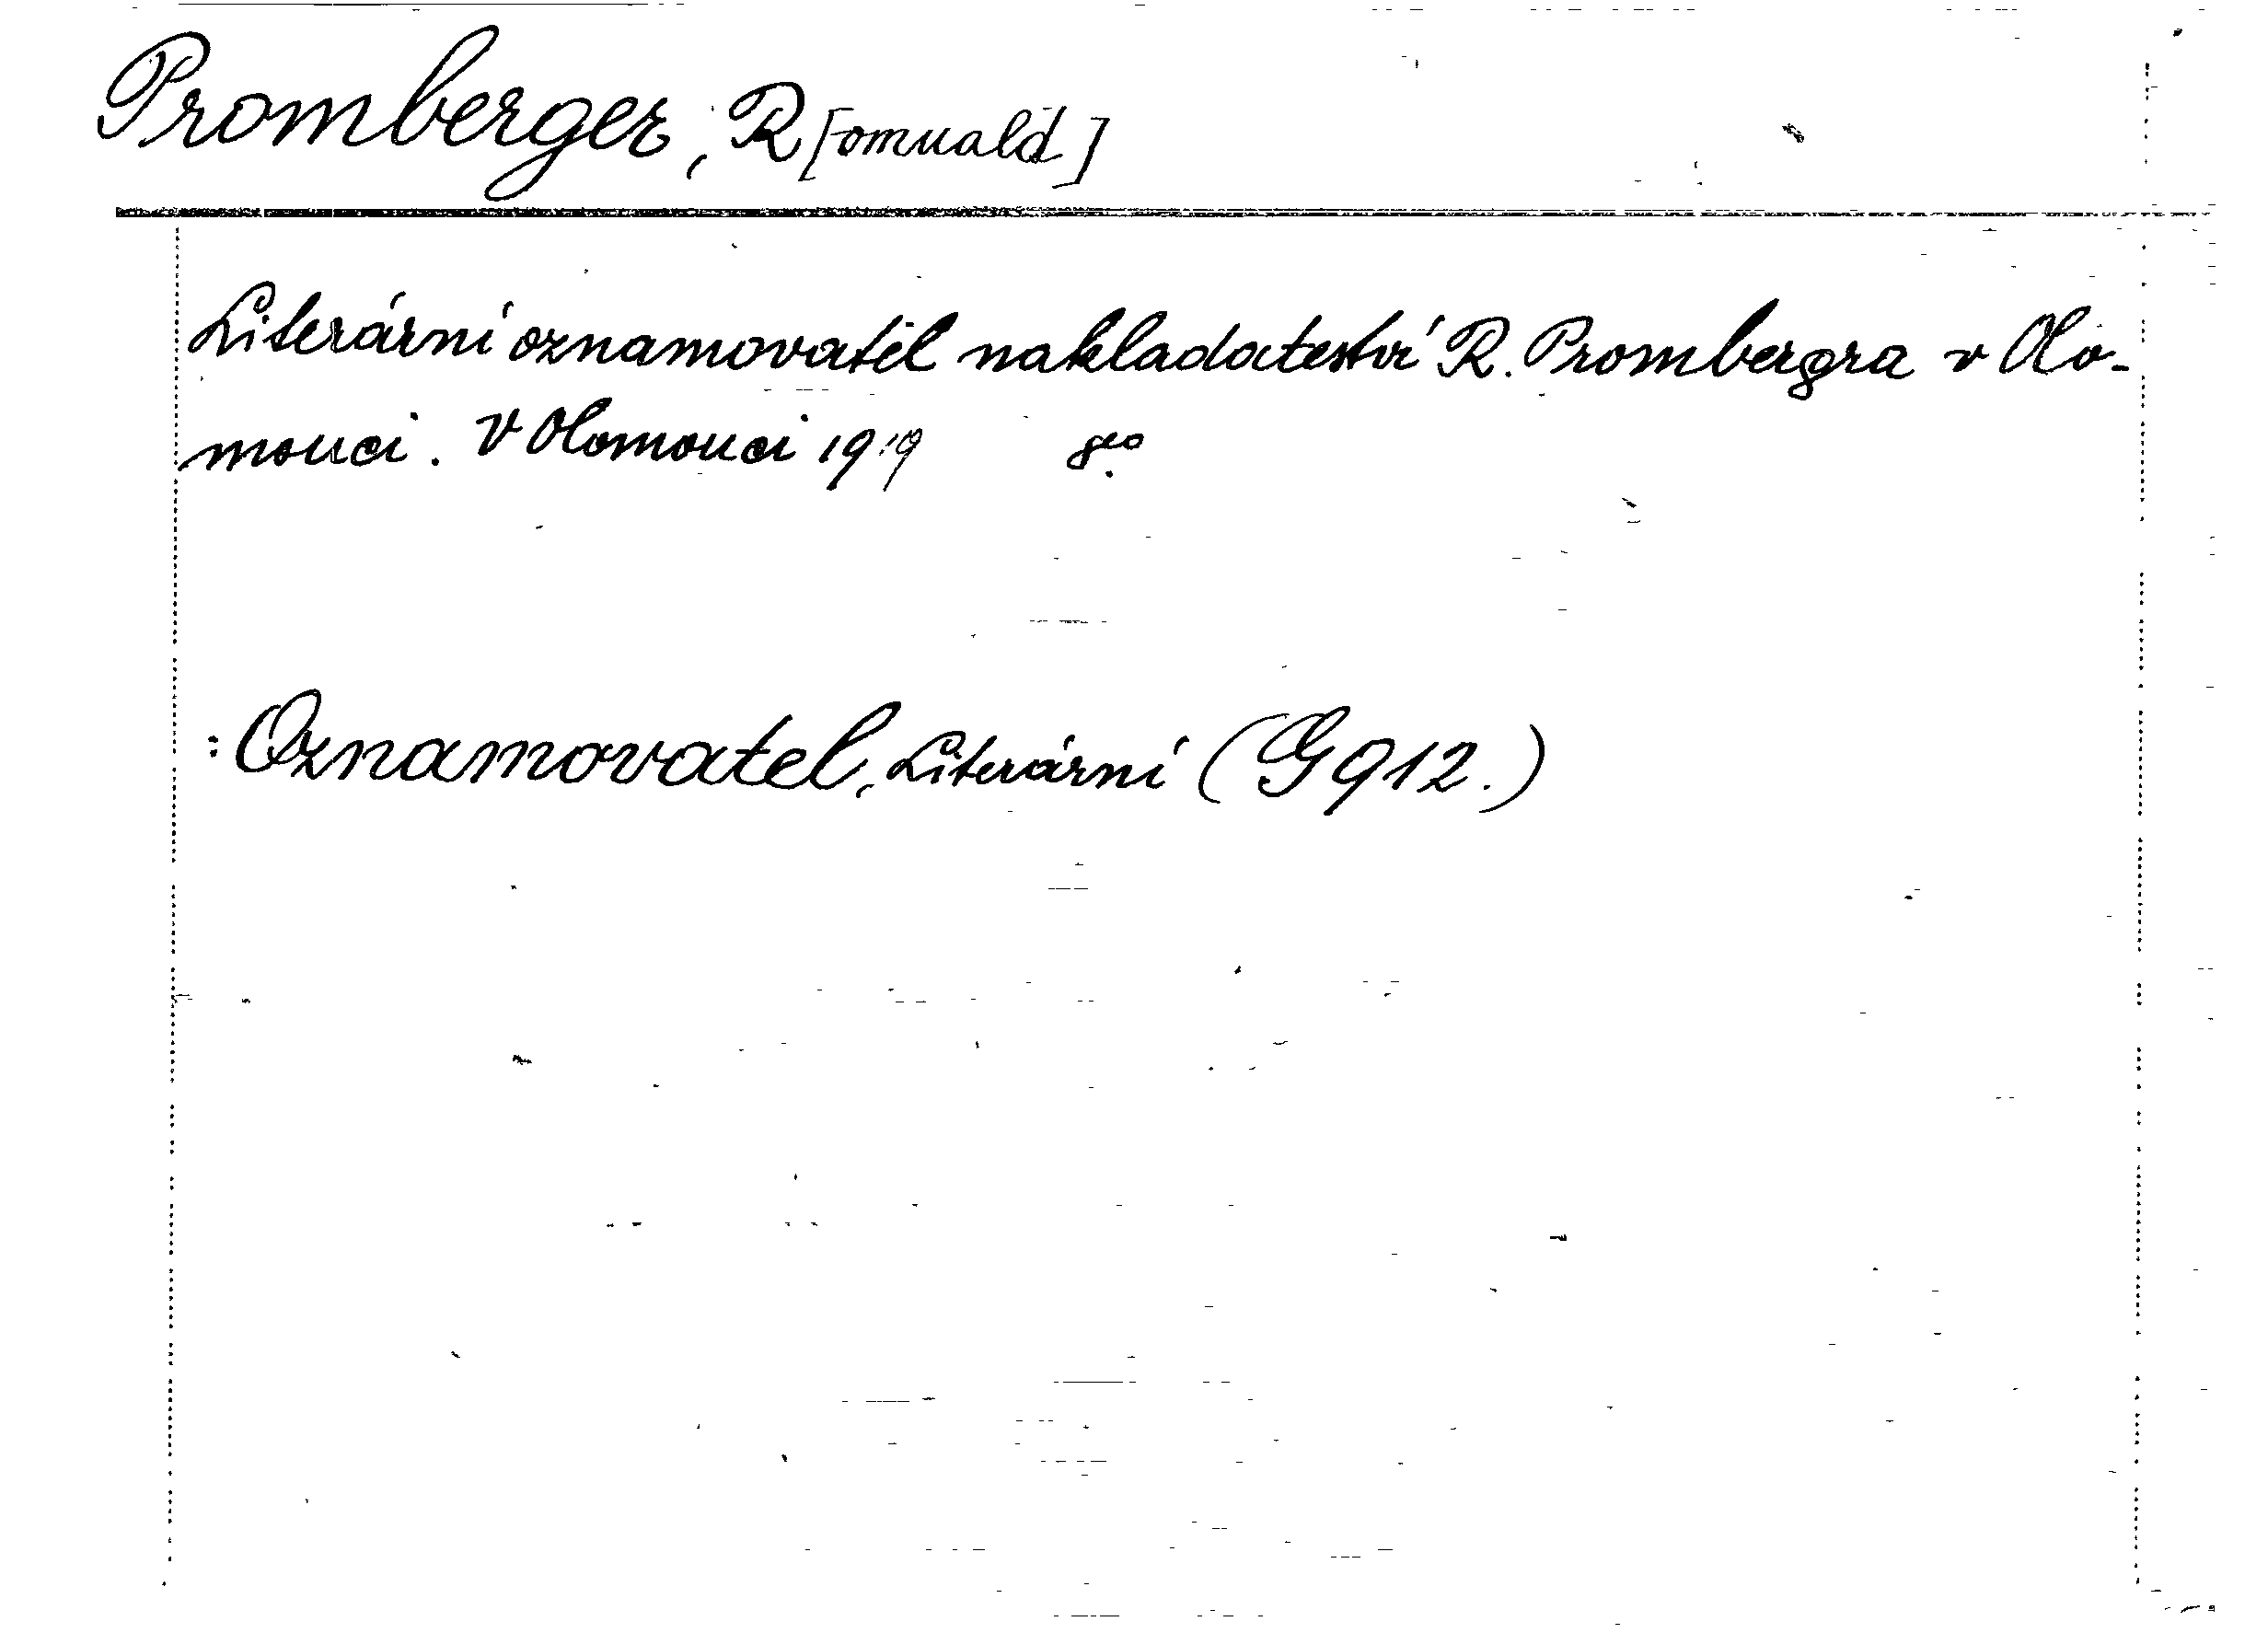 Promberger, R[omuald]
Literární oznamovatel nakladateství R. Prombergra v Olo-
mouci. V Olomouci 1919 8º.
: Oznamovatel, Literární (G 912.)